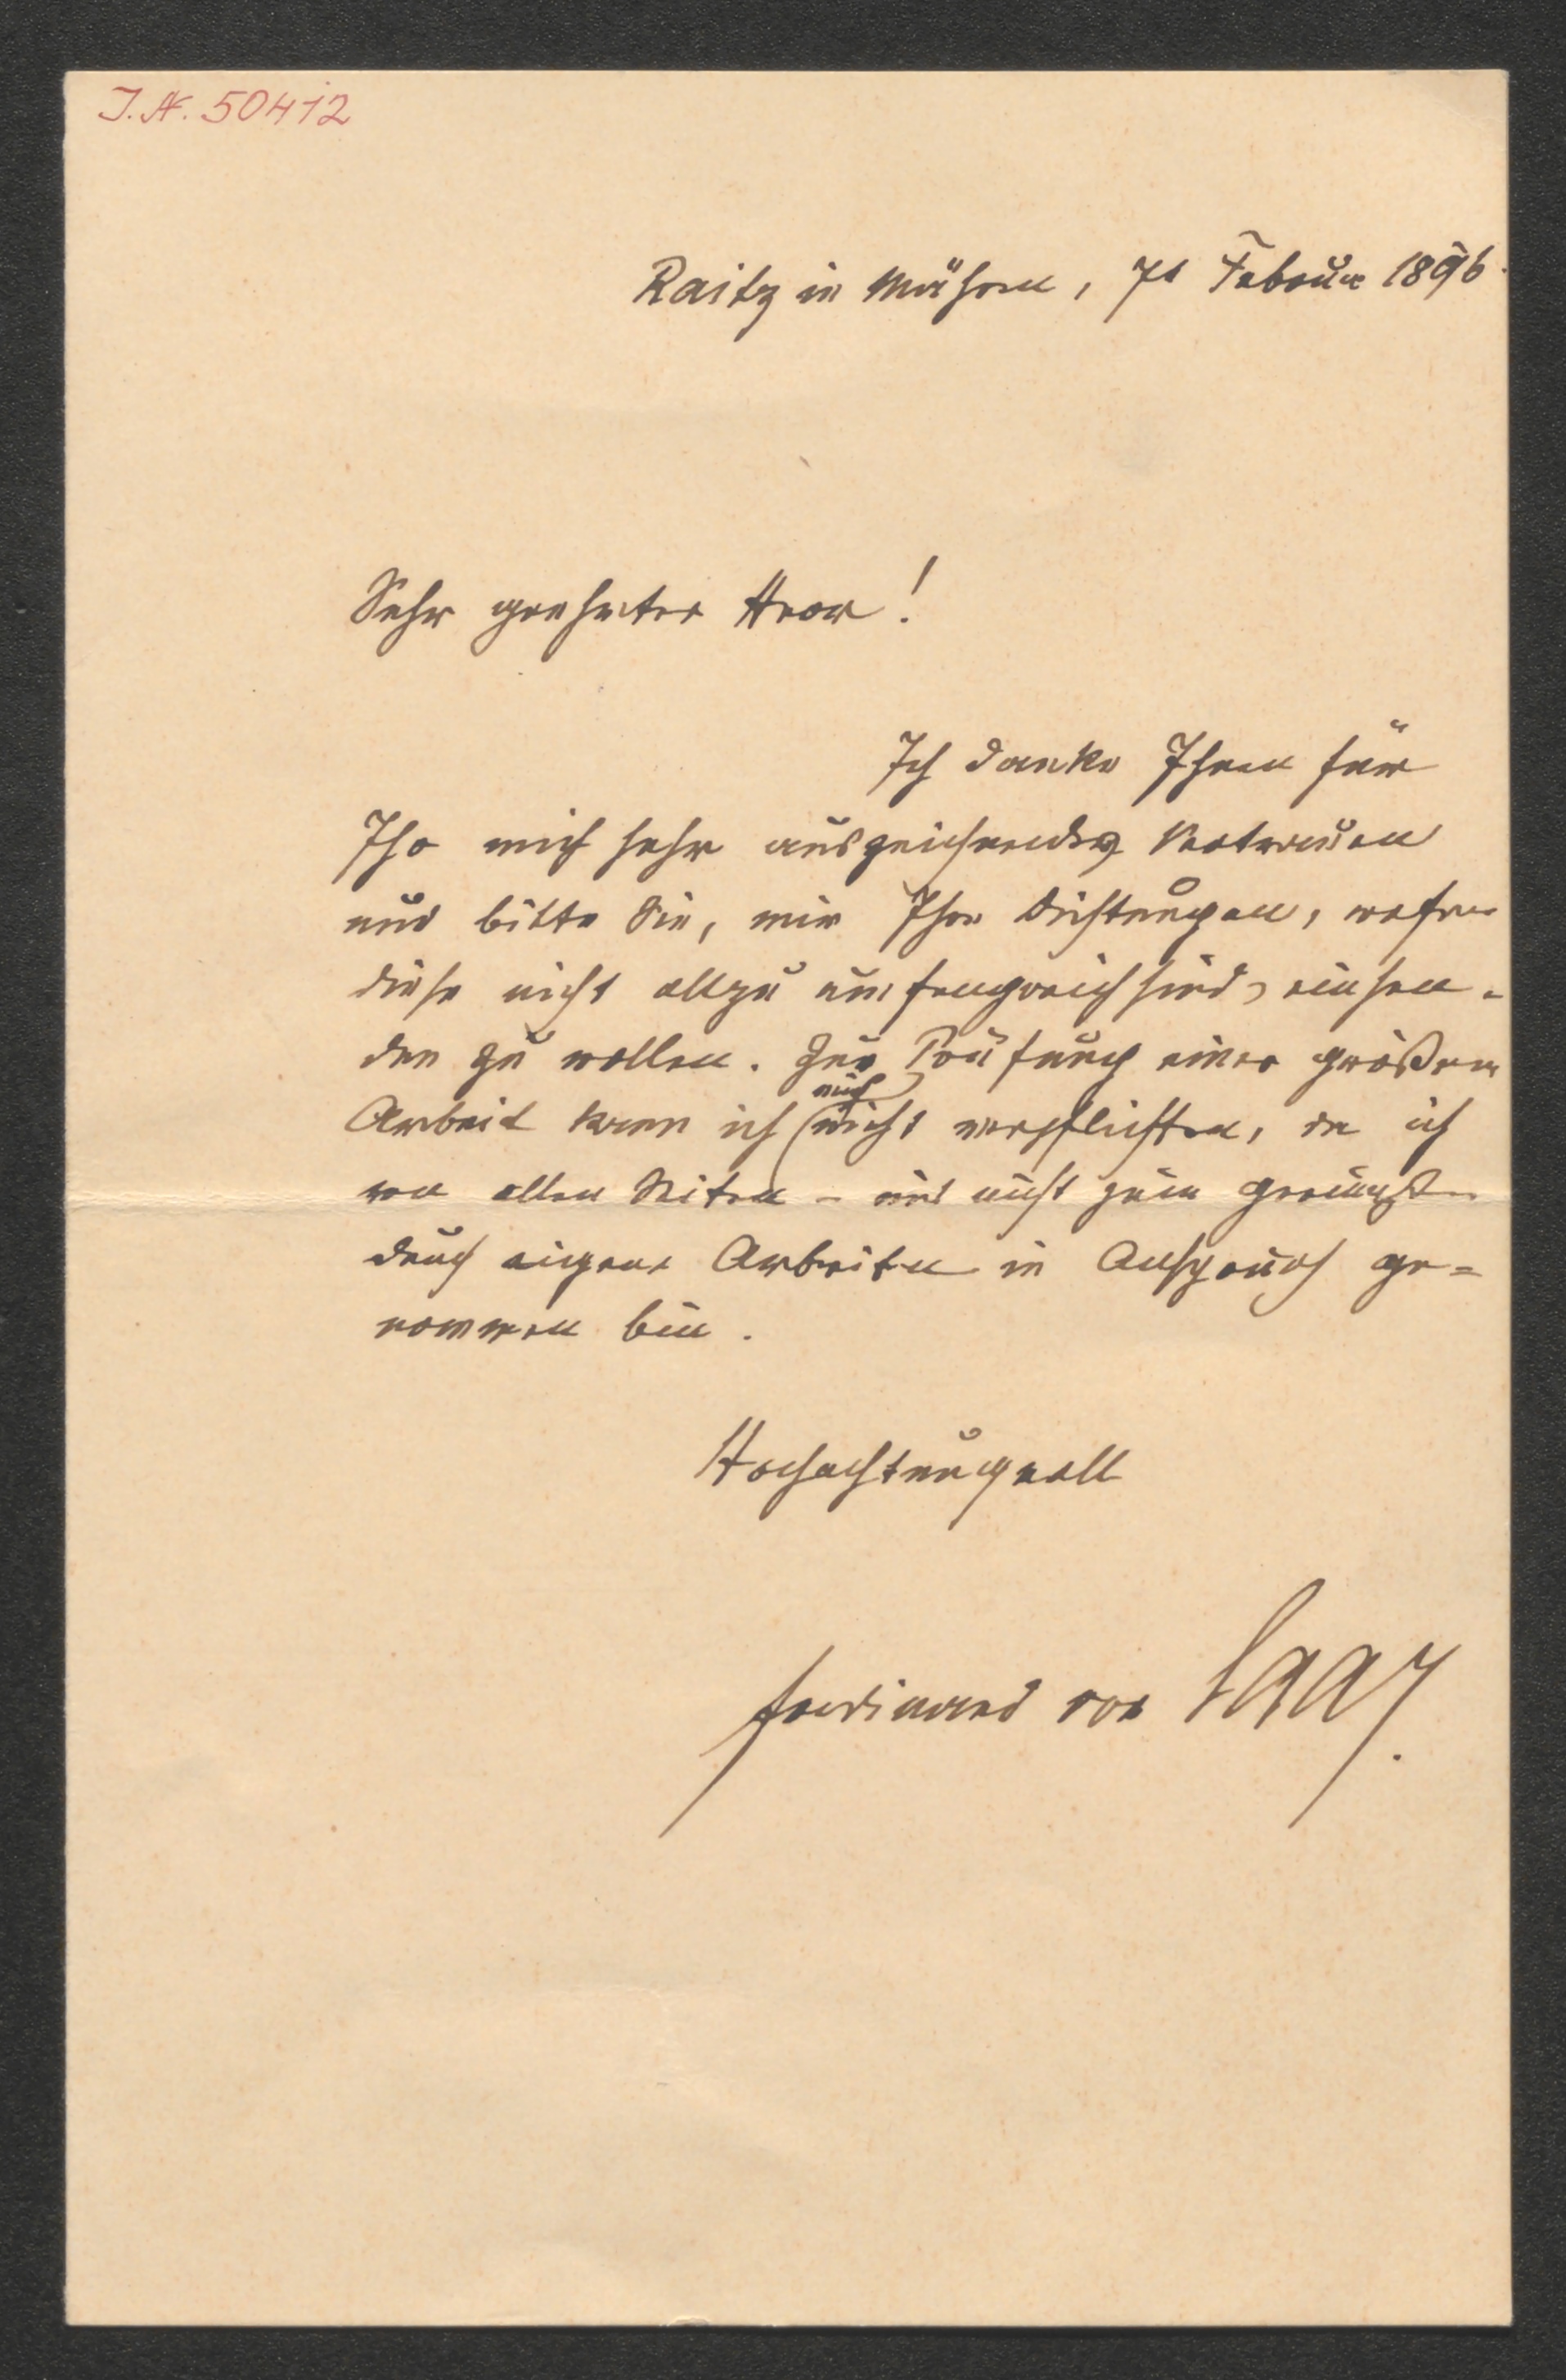 J.N. 50412
Raitz in Mähren, 7t Februar 1896.
Sehr geehrter Herr!
Ich danke Ihnen für
Ihr mich sehr auszeichnendes Vertrauen
und bitte Sie, mir Ihre Dichtungen, wofern
diese nicht allzu umfangreich sind, einsen-
den zu wollen. Zur Prüfung einer größern
Arbeit kann ich mich nicht verpflichten, da ich
von allen Seiten – und nicht zum geringsten
durch eigene Arbeiten in Anspruch ge=
nommen bin.
Hochachtungsvoll
Ferdinand von Saar.